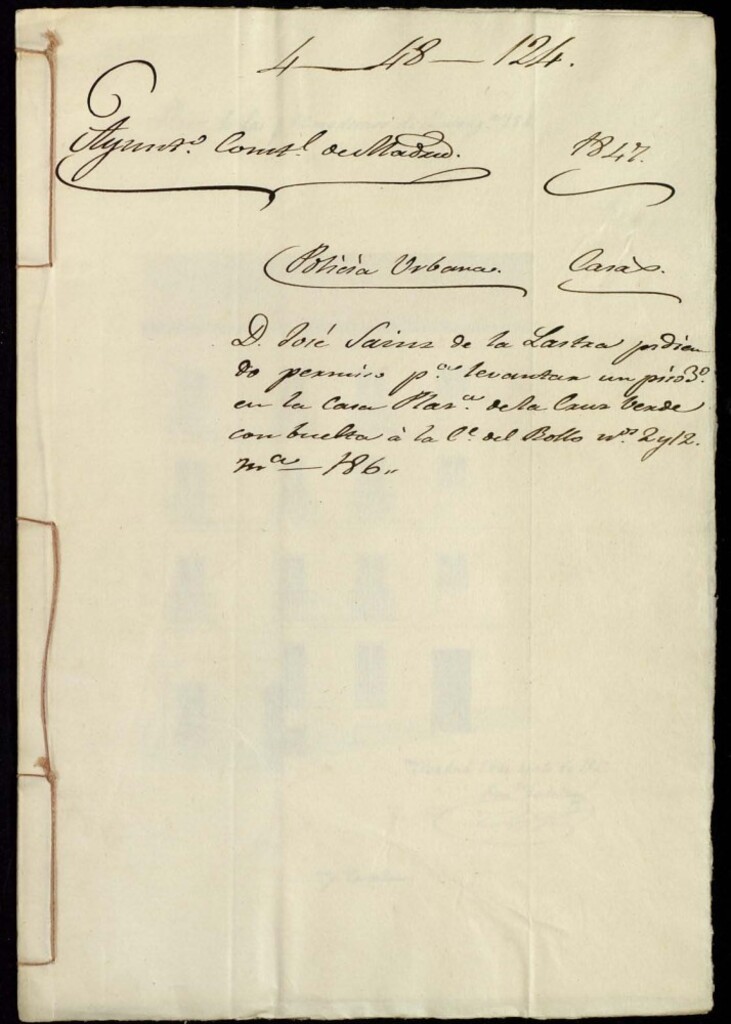 4 — 48 — 124.
Ayunto. Constl. de Madrid. 1847.
Policía Urbana. Casas.
D. José Sainz de la Lastra pidien
do permiso pa. levantar un piso 3º.
en la casa Plaza. de la Cruz Verde
con buelta à la Ce. del Rollo nos. 2 y 12.
mª — 186 "